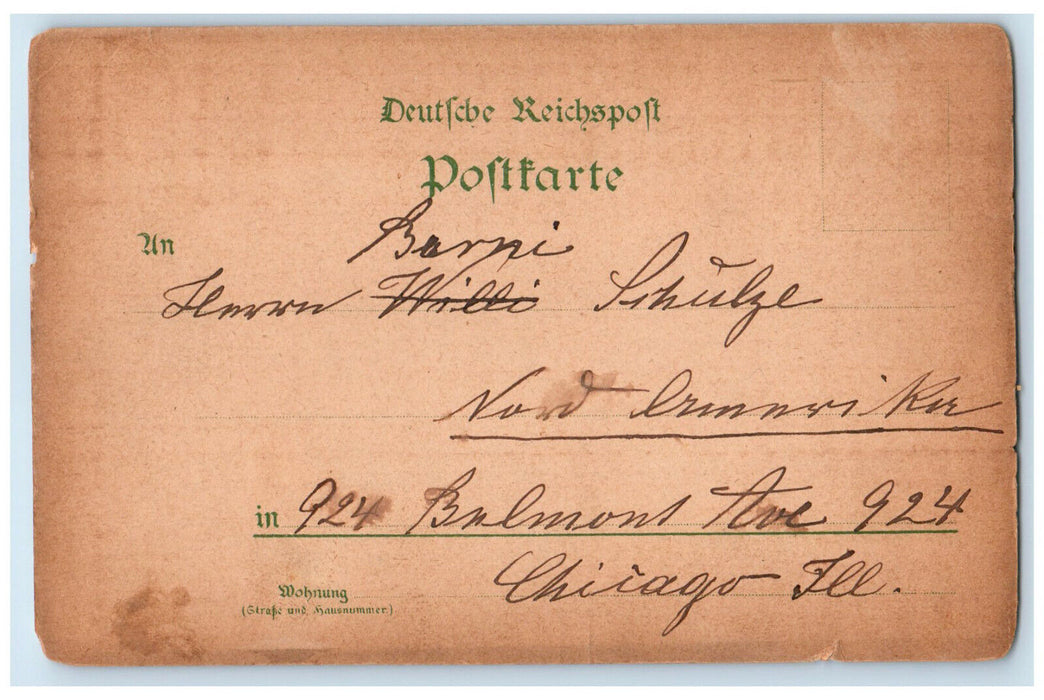 Deutsche Reichspost
Postkarte
An
Herrn Willi Schulze
Nord Amerika
in 924 Belmont Ave 924
Chicago Ill.
Wohnung
(Straße und Hausnummer)